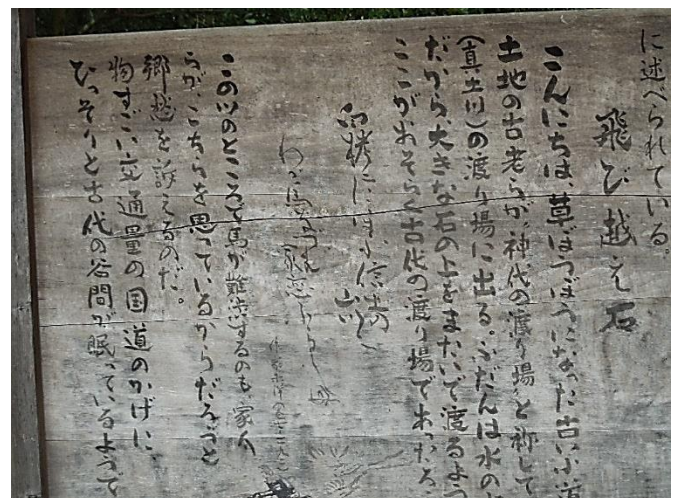 に述べられている。
飛び越え石
こんにちは、草ぼうぼうになった古い小道
土地の古老らが、神代の渡り場と称して
(真土川)の渡り場に出る。ふだんは水の
だから、大きな石の上をまたいで渡るよう
ここがおそらく古代の渡り場であったろ
白栲に にほふ信土の 山川に
わが馬なづむ 家恋ふらしも
この川のところで馬が難渋するのも、家人
らが、こちらを思っているからだろうと
郷愁を訴えるのだ。
物すごい交通量の国道のかげに、
ひっそりと古代の谷間が眠っているようで